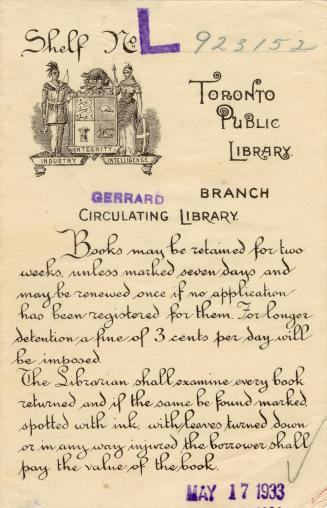 Shelf No. L 923152
TORONTO
PUBLIC
LIBRARY.
INTEGRITY
INDUSTRY INTELLIGENCE
GERRARD BRANCH
CIRCULATING LIBRARY.
Books may be retained for two
weeks, unless marked seven days and
may be renewed once if no application
has been registered for them. For longer
detention a fine of 3 cents per day will
be imposed.
The Librarian shall examine every book
returned and if the same be found marked,
spotted with ink, with leaves turned down
or in any way injured the borrower shall
pay the value of the book.
MAY 17 1933